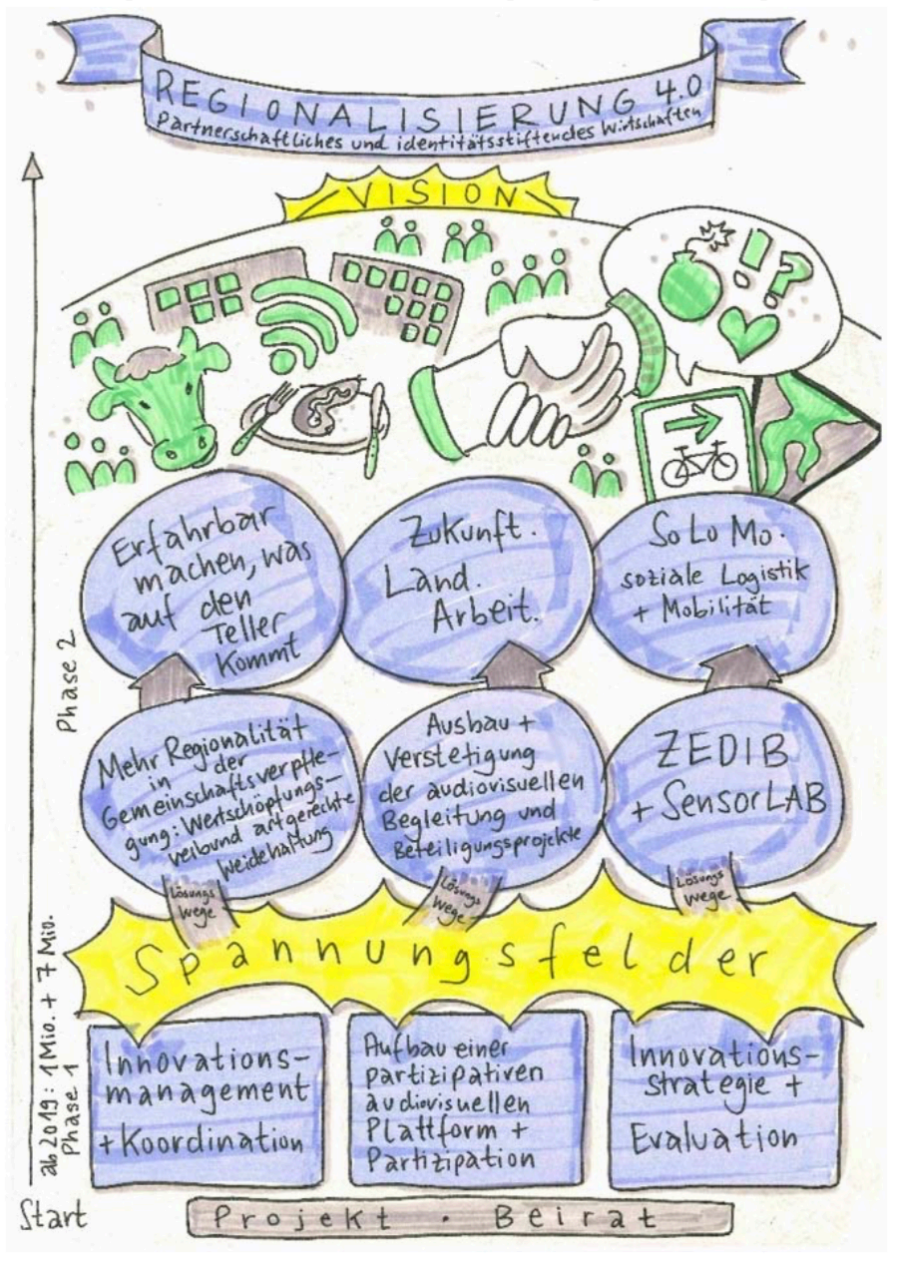 REGIONALISIERUNG 4.0
Partnerschaftliches und identitätsstiftendes Wirtschaften
VISION
! ?
Erfahrbar
machen, was
auf den
Teller
kommt
Zukunft.
Land.
Arbeit.
SoLoMo.
soziale Logistik
+ Mobilität
Phase 2
Mehr Regionalität
in der
Gemeinschaftsverpfle-
gung: Wertschöpfungs-
verbund artgerechte
Weidehaltung
Ausbau +
Verstetigung
der audiovisuellen
Begleitung und
Beteiligungsprojekte
ZEDIB
+ SensorLAB
Lösungs
wege
Lösungs
wege
Lösungs
wege
Spannungsfelder
ab 2019: 1 Mio. + 7 Mio.
Phase 1
Innovations-
management
+ Koordination
Aufbau einer
partizipativen
audiovisuellen
Plattform +
Partizipation
Innovations-
strategie +
Evaluation
Start
Projekt · Beirat